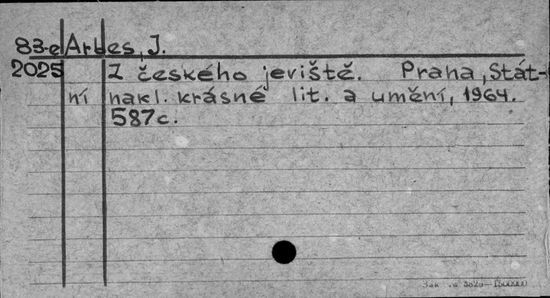 83-е Arbes, J.
2025 Z českého jeviště. Praha, Stát-
ní nakl. krásné lit. a umění, 1964.
587с.